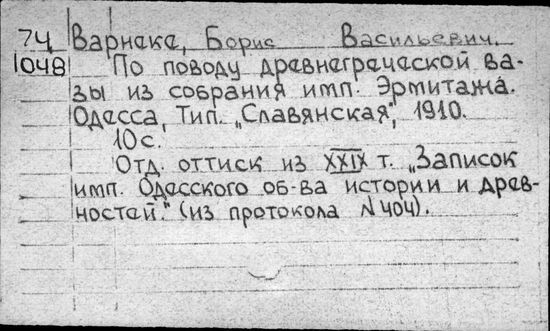 74 Варнеке, Борис Васильевич.
1048 По поводу древнегреческой ва-
зы из собрания имп. Эрмитажа.
Одесса, Тип. „Славянская", 1910.
10с.
Отд. оттиск из XXIX т. „Записок
имп. Одесского об-ва истории и древ-
ностей." (из протокола N 404).